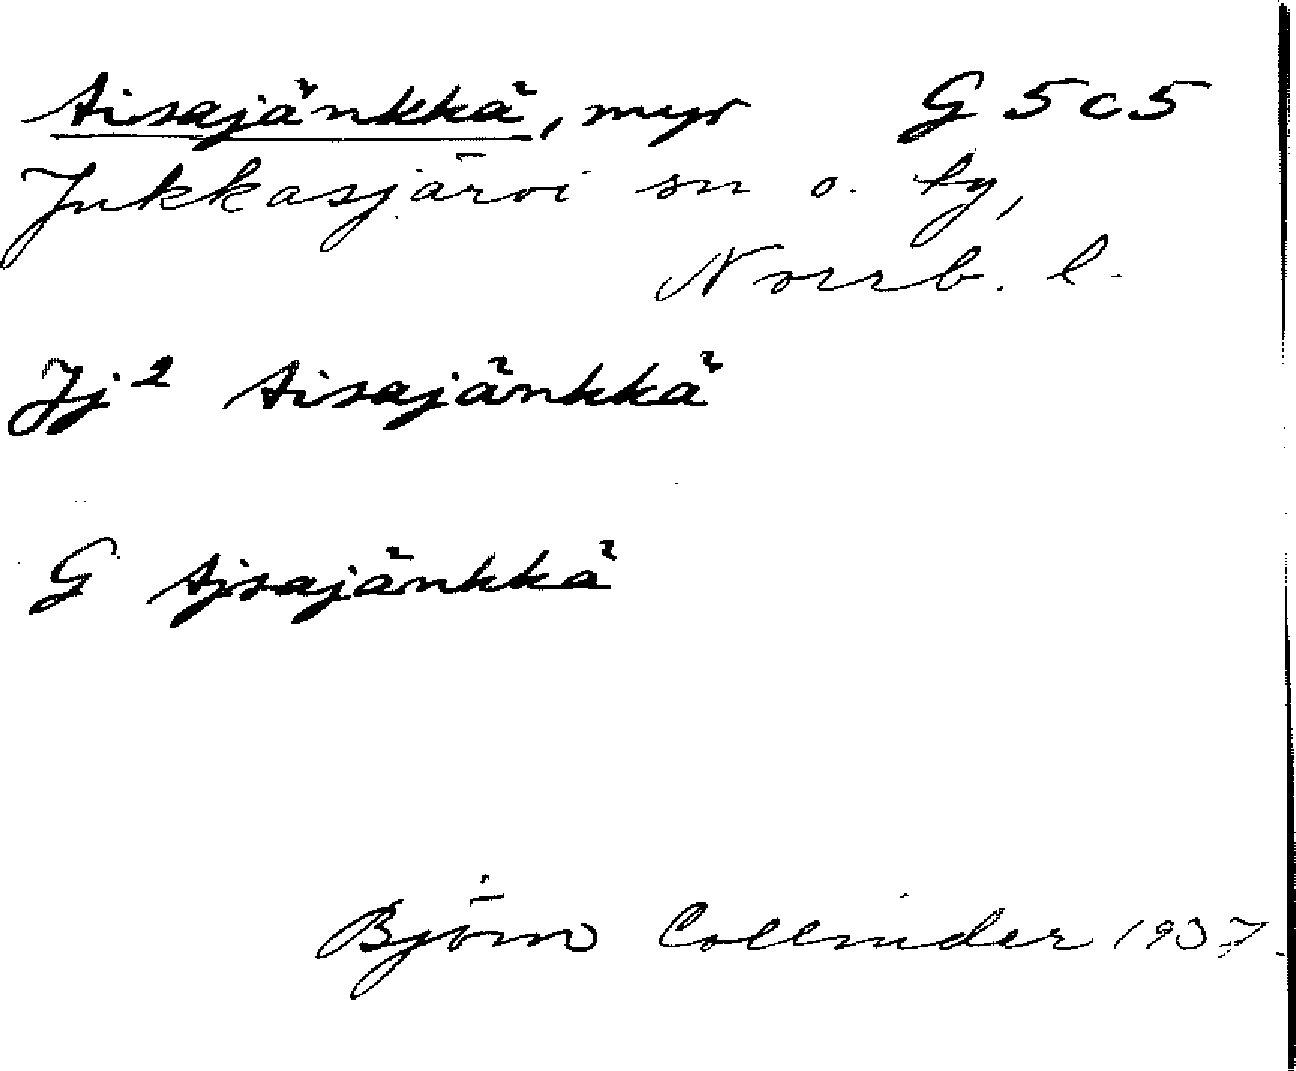 Aisajänkkä, myr G 5 c 5
Jukkasjärvi sn o. tg,
Norrb. l.
Jj² Aisajänkkä
G Ajsajänkkä
Björn Collinder 1937.